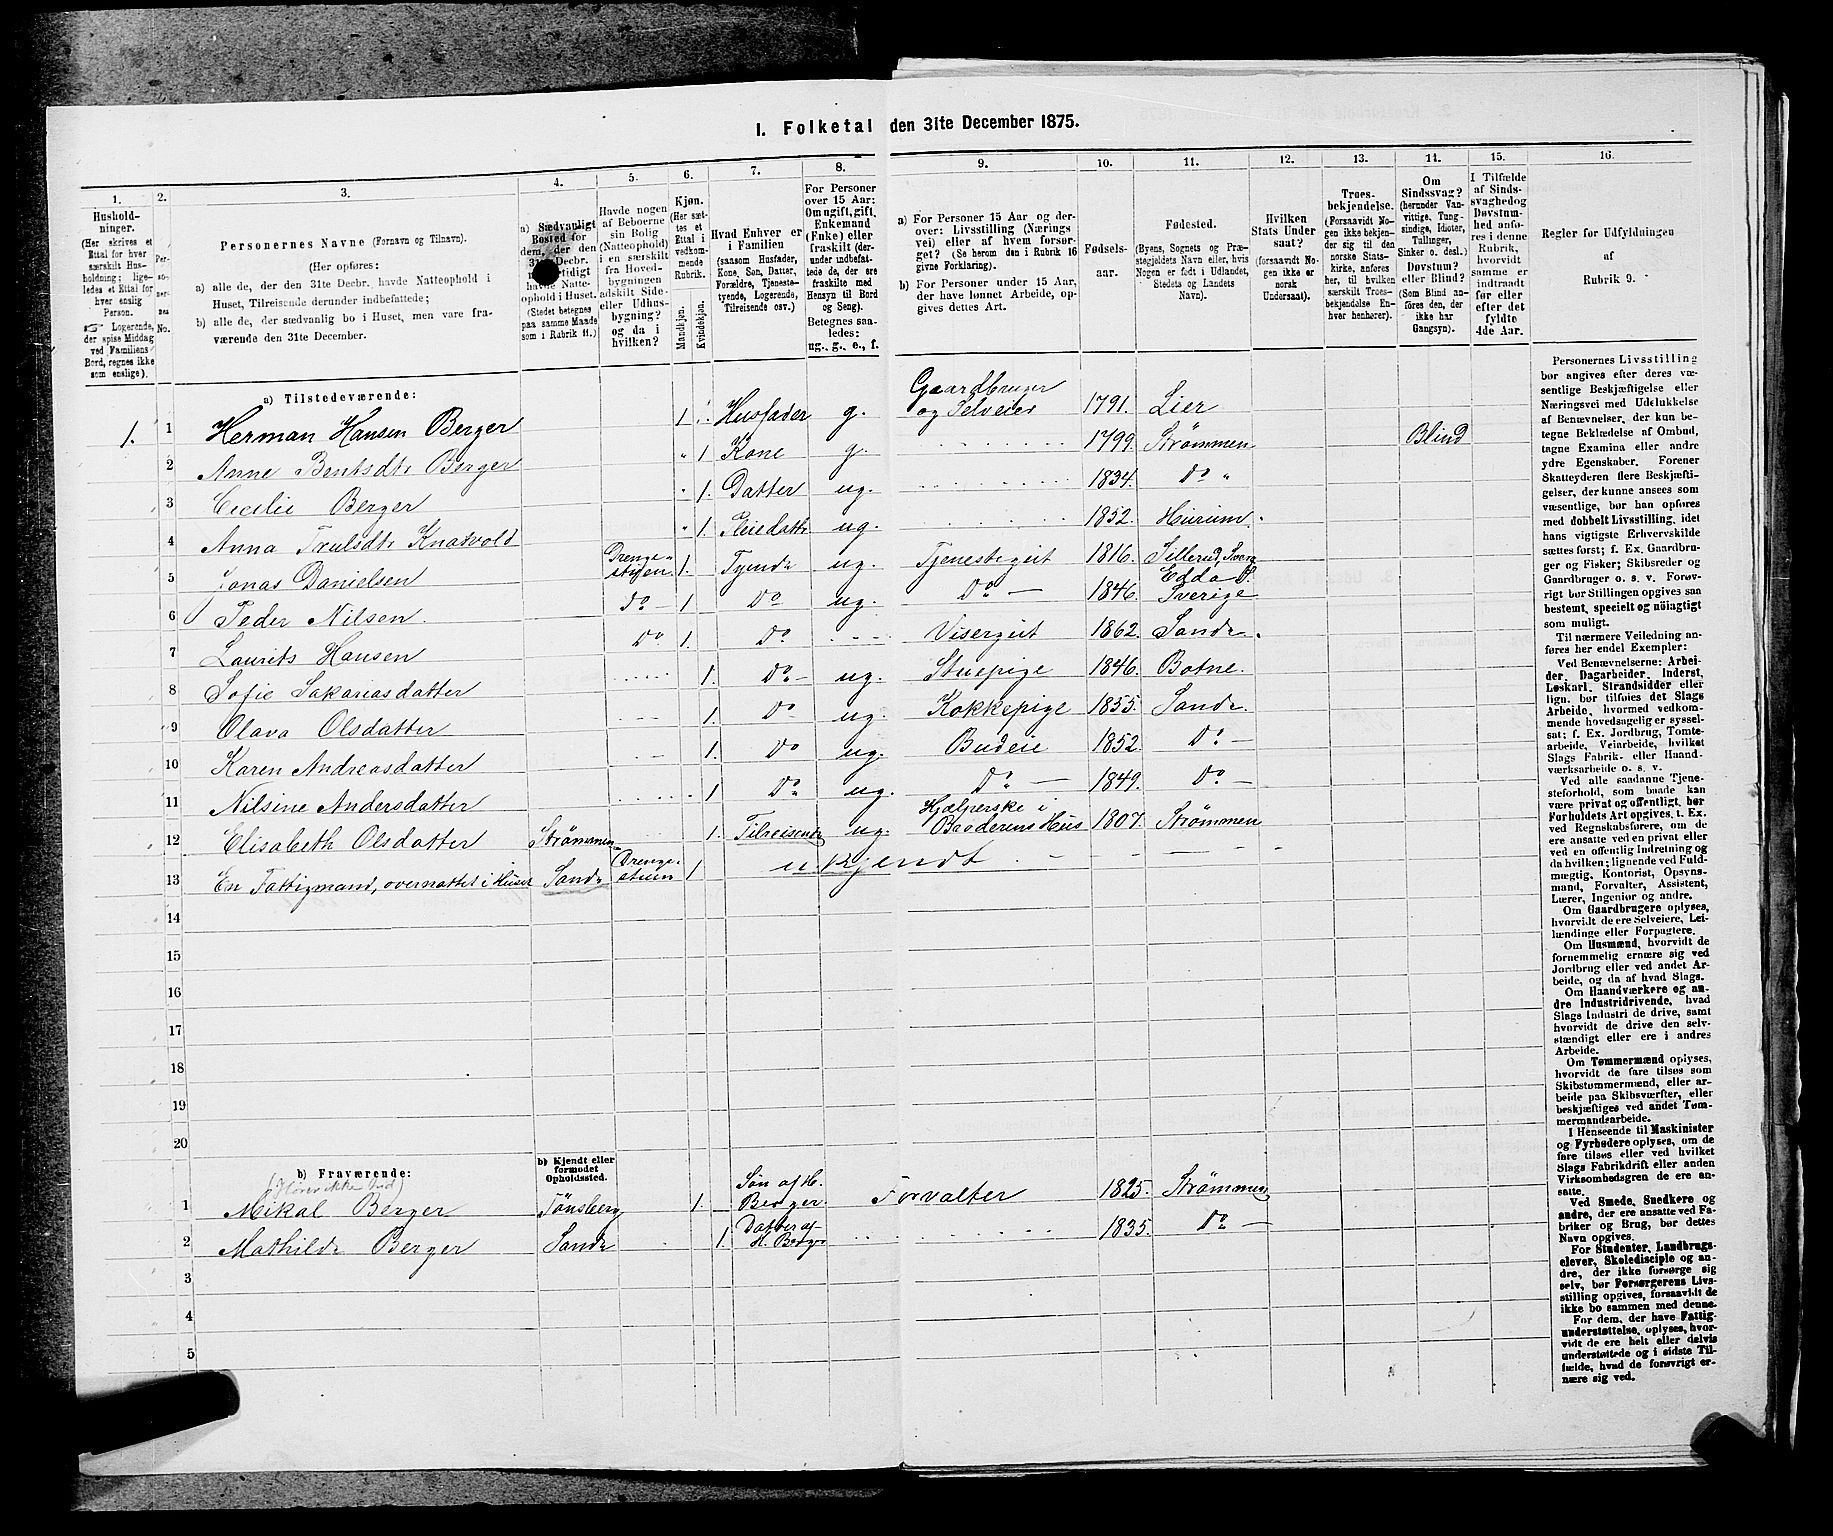 I. Folketal den 31te December 1875.
1. 2. 3. 4. 5. 6. 7. 8. 9. 10. 11. 12. 13. 14. 15. 16.
Hushold-
ninger.
(Her skrives et
Ettal for hver
særskilt Hus-
holdning; lige-
ledes et Ettal for
hver enslig
Person.
☞ Logerende,
der spise Middag
ved Familiens
Bord, regnes ikke
som enslige).
Per-
so-
ner-
nes
No.
Personernes Navne (Fornavn og Tilnavn).
(Her opføres:
a) alle de, der den 31te Decbr. havde Natteophold i
Huset, Tilreisende derunder indbefattede;
b) alle de, der sædvanlig bo i Huset, men vare fra-
værende den 31te December.
a) Sædvanligt
Bosted for
dem, der den
31te Decbr.
midlertidigt
havde Natte-
ophold i Huset.
(Stedet betegnes
paa samme Maade
som i Rubrik 11.)
Havde nogen
af Beboerne
sin Bolig
(Natteophold)
i en særskilt
fra Hoved-
bygningen
adskilt Side-
eller Udhus-
bygning?
og da i
hvilken?
Kjøn.
(Her sæt-
tes et
Ettal i
vedkom-
mende
Rubrik.
Mandkjøn.
Kvindekjøn.
Hvad Enhver er
i Familien
(saasom Husfader,
Kone, Søn, Datter,
Forældre, Tjeneste-
tyende, Logerende,
Tilreisende osv.)
For Personer
over 15 Aar:
Om ugift, gift,
Enkemand
(Enke) eller
fraskilt (der-
under indbefat-
tede de, der ere
fraskilte med
Hensyn til Bord
og Seng).
Betegnes saa-
ledes:
ug., g., e., f.
a) For Personer 15 Aar og der-
over: Livsstilling (Nærings
vei) eller af hvem forsør-
get? (Se herom den i Rubrik 16
givne Forklaring).
b) For Personer under 15 Aar,
der have lønnet Arbeide, op-
gives dettes Art.
Fødsels-
aar.
Fødested.
(Byens, Sognets og Præ-
stegjeldets Navn eller, hvis
Nogen er født i Udlandet,
Stedets og Landets
Navn).
Hvilken
Stats Under
saat?
(forsaavidt No-
gen ikke er
norsk
Undersaat).
Troes-
bekjendelse.
(Forsaavidt No-
gen ikke bekjen-
der sig til den
norske Stats-
kirke, anføres
her, til hvilken
særskilt Troes-
bekjendelse En-
hver henhører).
Om
Sindssvag?
(herunder Van-
vittige, Tung-
sindige, Idioter,
Tullinger,
Sinker o. desl.)
Døvstum?
eller Blind?
(Som Blind an-
føres den, der
ikke har
Gangsyn).
I Tilfælde
af Sinds-
svaghed og
Døvstum-
hed anfø-
res i denne
Rubrik,
hvorvidt
samme er
indtraadt
før eller
efter det
fyldte
4de Aar.
Regler for Udfyldningen
af
Rubrik 9.
a) Tilstedeværende:
1. 1 Herman Hansen Berger 1 Husfader g. Gaardbruger og Selveier 1791. Lier
2 Anne Bentsdtr Berger " 1 Kone g. 1799. Strømmen Blind
3 Cecilie Berger " 1. Datter ug. 1834. Do "
4 Anna Trulsdtr Knatvold " 1. Pleiedattr ug. 1852. Hurum.
5 Jonas Danielsen Drengestuen 1. Tyende ug. Tjenestegut 1816. Sillerud, Sverg
6 Peder Nilsen. Do 1 Do ug. Do 1846. Edda S. Sverige
7 Laurits Hansen Do 1. Do Visergut 1862. Sande.
8 Sofie Sakariasdatter 1. Do ug. Stuepige 1846. Botne.
9 Olava Olsdatter 1. Do ug. Kokkepige 1855. Sande.
10 Karen Andreasdatter 1. Do ug. Budeie 1852 Do
11 Nilsine Andersdatter 1 Do ug. Do 1849. Do
12 Elisabeth Olsdatter Strømmen 1. Tilreisende ug. Hjælperske i Broderens Hus 1807. Strømmen
13 En Fattigmand, overnattet i Huset Sande Drengestuen 1 ukjendt
14
15
16
17
18
19
20
b) Fraværende:
b) Kjendt eller
formodet
Opholdssted.
(Høres ikke hid)
1 Mikal Berger Tönsberg 1. Søn af H. Berger Forvalter 1825. Strømmen
2 Mathilde Berger Sande 1. Datter af H. Berger 1835. Do
3
4
5
Personernes Livsstilling
bør angives efter deres væ-
sentlige Beskjæftigelse eller
Næringsvei med Udelukkelse
af Benævnelser, der kun be-
tegne Beklædelse af Ombud,
tagne Examina eller andre
ydre Egenskaber. Forener
Skatteyderen flere Beskjæfti-
gelser, der kunne ansees som
væsentlige, bør han opføres
med dobbelt Livsstilling, idet
hans vigtigste Erhvervskilde
sættes først; f. Ex. Gaardbru-
ger og Fisker; Skibsreder og
Gaardbruger o. s. v. Forøv-
rigt bør Stillingen opgives saa
bestemt, specielt og nøiagtigt
som muligt.
Til nærmere Veiledning an-
føres her endel Exempler:
Ved Benævnelserne: Arbei-
der, Dagarbeider, Inderst,
Løskarl, Strandsidder eller
lign. bør tilføies det Slags
Arbeide, hvormed vedkom-
mende hovedsagelig er syssel-
sat; f. Ex. Jordbrug, Tomte-
arbeide, Veiarbeide, hvilket
Slags Fabrik- eller Haand-
værksarbeide o. s. v.
Ved alle saadanne Tjene-
steforhold, som baade kan
være privat og offentligt, bør
Forholdets Art opgives, t. Ex.
ved Regnskabsførere, om de
ere ansatte ved en privat eller
ved en offentlig Indretning og
da hvilken; lignende ved Fuld-
mægtig, Kontorist, Opsyns-
mand, Forvalter, Assistent,
Lærer, Ingeniør og andre.
Om Gaardbrugere oplyses,
hvorvidt de ere Selveiere, Lei-
lændinge eller Forpagtere.
Om Husmænd, hvorvidt de
fornemmelig ernære sig ved
Jordbrug eller ved andet Ar-
beide, og da af hvad Slags.
Om Haandværkere og an-
dre Industridrivende, hvad
Slags Industri de drive, samt
hvorvidt de drive den selv-
stændigt eller ere i andres
Arbeide.
Om Tømmermænd oplyses,
hvorvidt de fare tilsøs som
Skibstømmermænd, eller ar-
beide paa Skibsværfter, eller
beskjæftiges ved andet Tøm-
mermandsarbeide.
I Henseende til Maskinister
og Fyrbødere oplyses, om de
fare tilsøs eller ved hvilket
Slags Fabrikdrift eller anden
Virksomhedsgren de ere an-
satte.
Ved Smede, Snedkere og
andre, der ere ansatte ved Fa-
briker og Brug, bør dettes
Navn opgives.
For Studenter, Landbrugs-
elever, Skoledisciple og an-
dre, der ikke forsørge sig
selv, bør Forsørgerens Livs-
stilling opgives, forsaavidt de
ikke bo sammen med denne.
For dem, der have Fattig-
understøttelse, oplyses, hvor-
vidt de ere helt eller delvis
understøttede og i sidste Til-
fælde, hvad de forøvrigt er-
nære sig ved.